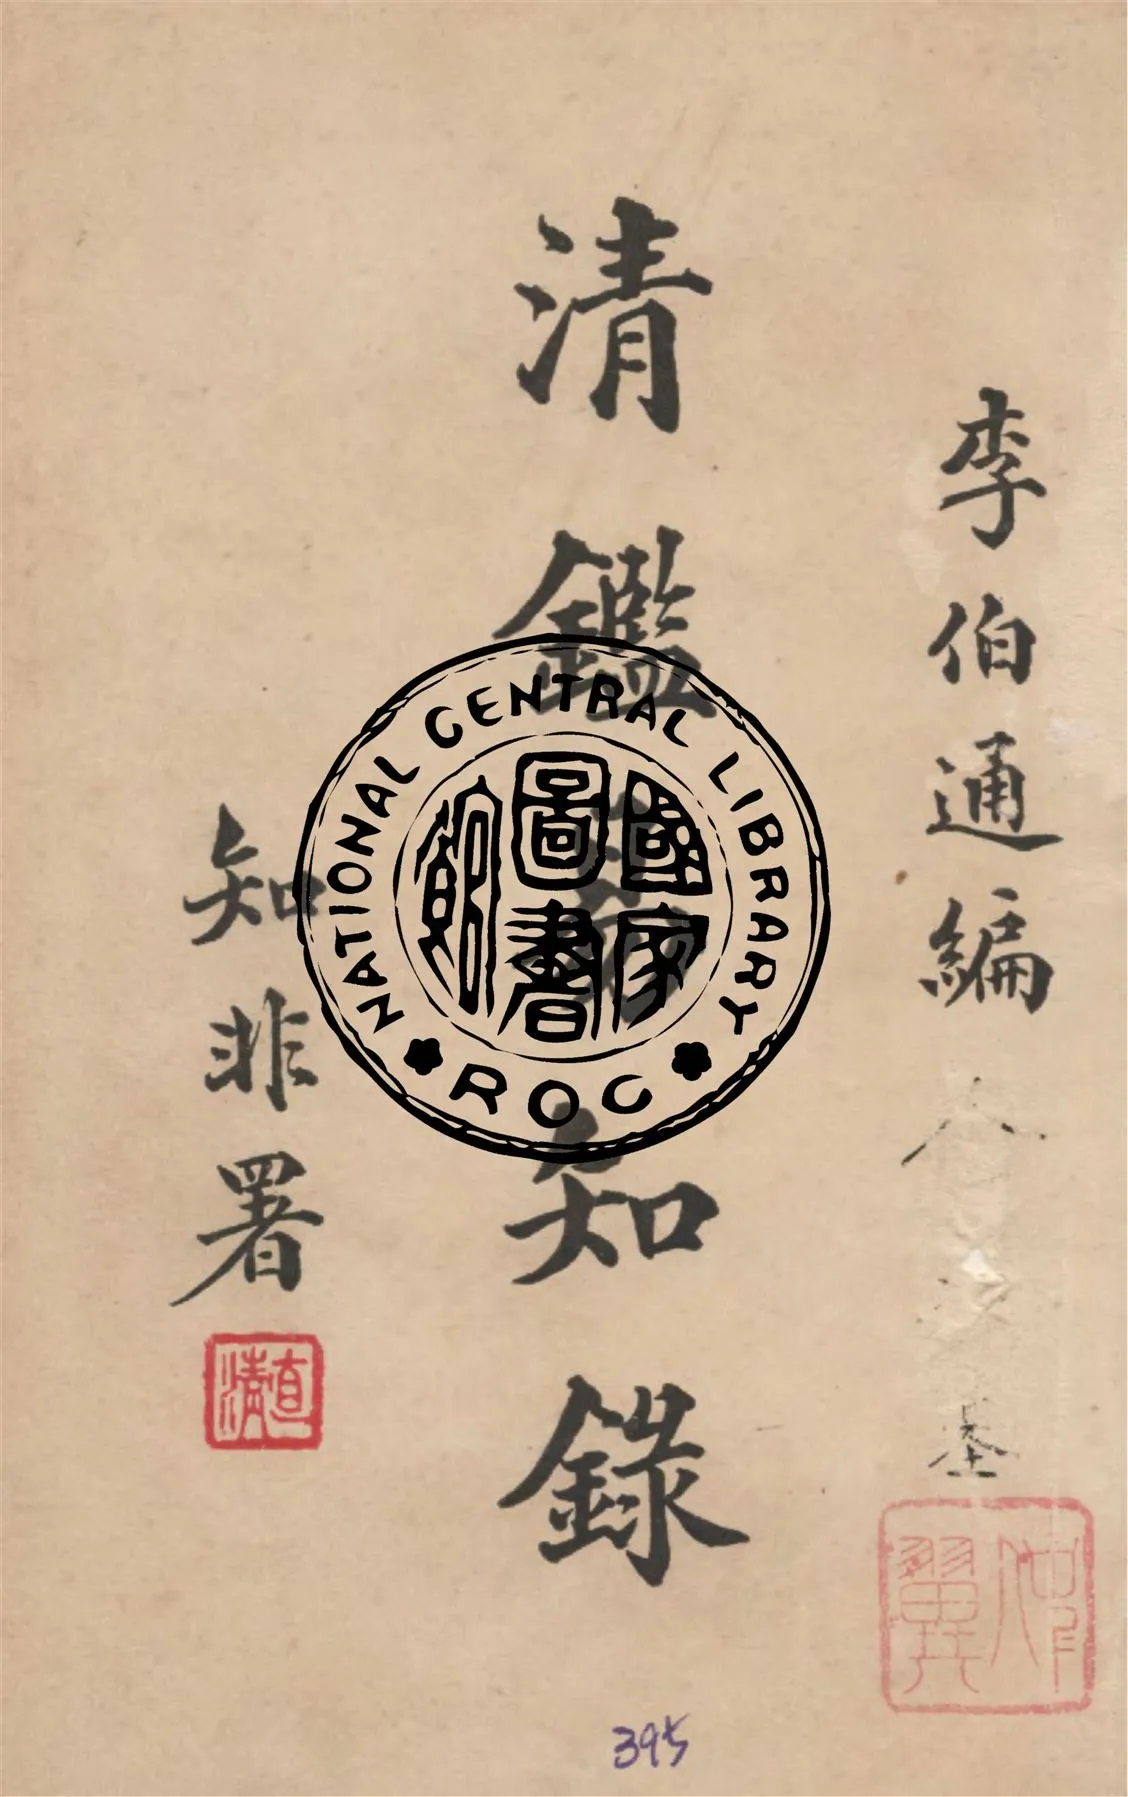 李伯通編
清鑑易知錄
知非署
直清
NATIONAL CENTRAL LIBRARY
ROC
國家圖書館
395